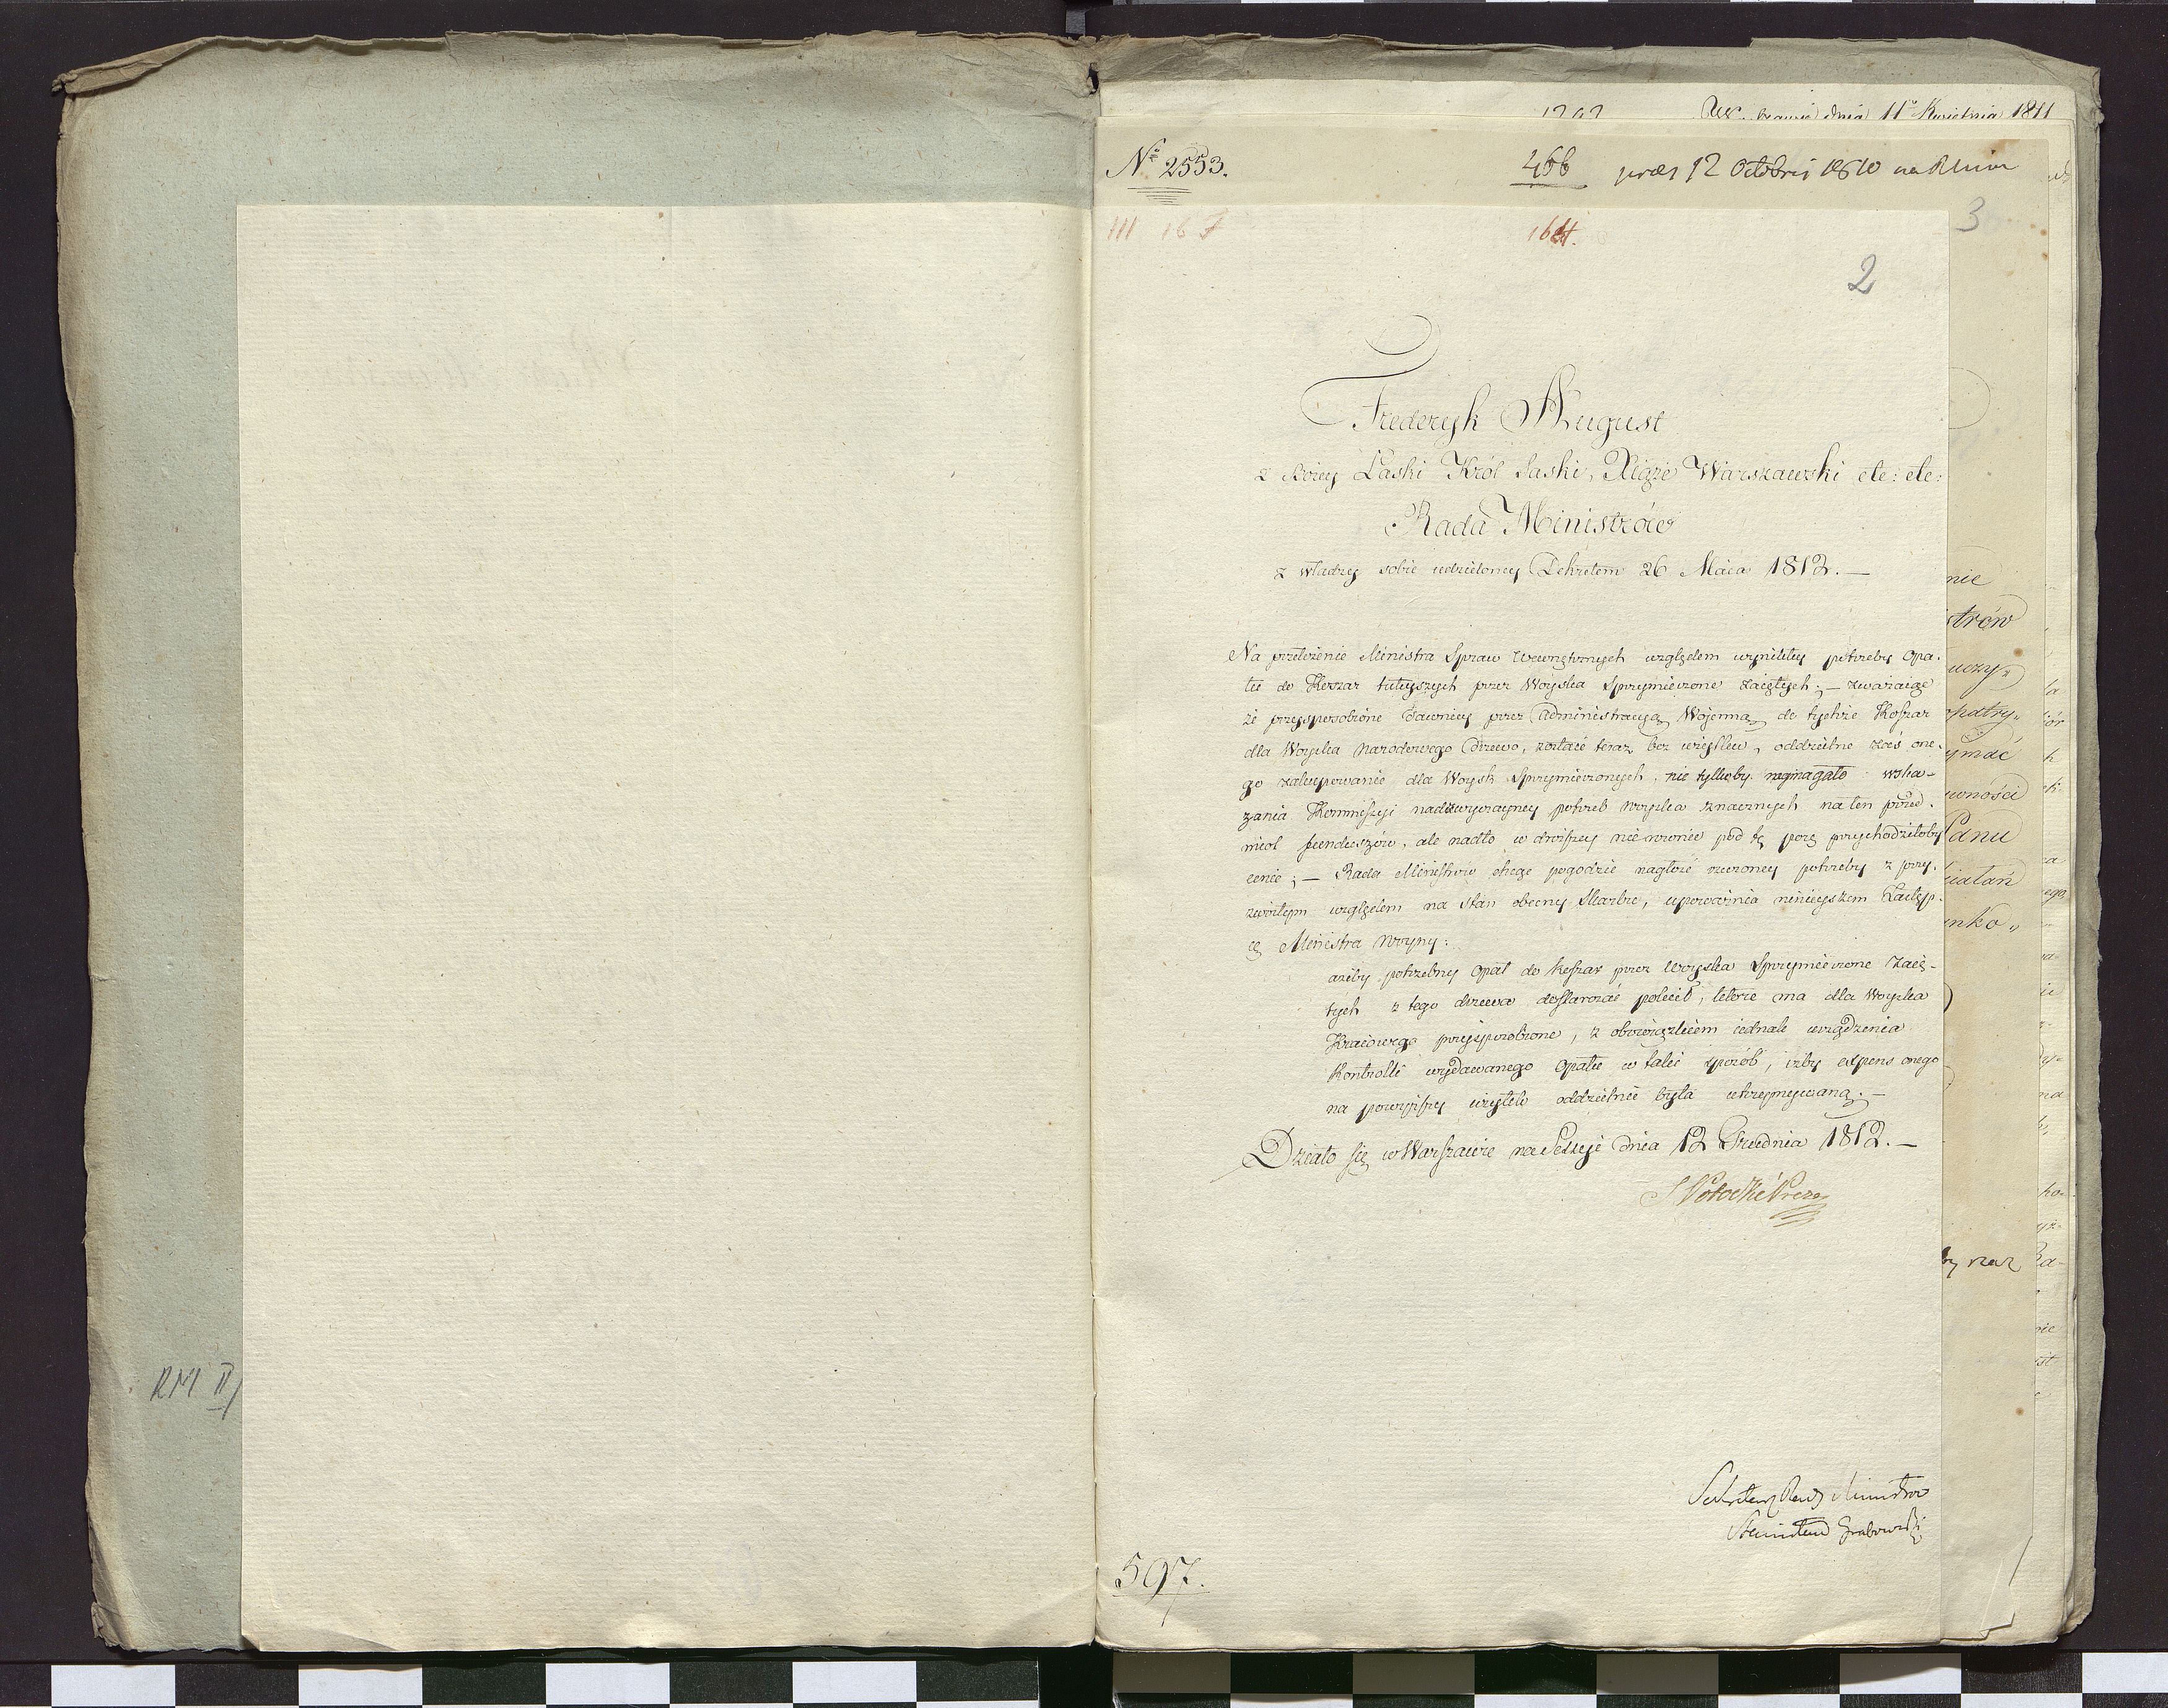 dnia 11º Kwietnia 1811
Nº 2553.
466 præs 12 Octobris 1810
III 167
164.
3
2
Frederyk August
z Bożey Łaski Król Saski, Xiąże Warszawski etc: etc:
Rada Ministrów
z władzy sobie udzieloney Dekretem 26 Maia 1812. —
Na przełożenie Ministra Spraw Wewnętrznych względem wynikłey potrzeby Opa-
łu do Koszar tuteyszych przez Woyska Sprzymierzone zaiętych; — zważaiąc
że przysposobione dawniey przez Administracyą Woienną do tychże Koszar
dla Woyska Narodowego drzewo, zostaie teraz bez użytku, oddzielne zaś one-
go zakupowanie dla Woysk Sprzymierzonych, nie tylkoby wymagało wska-
zania Kommissyi nadzwyczayney potrzeb woyska znacznych na ten przed-
miot funduszów, ale nadto w droższey nierównie pod tę porę przychodziłoby
cenie; — Rada Ministrów chcąc pogodzić nagłość rzeczoney potrzeby z przy-
zwoitym względem na stan obecny Skarbu, upoważnia ninieyszem Zastęp-
cę Ministra Woyny:
ażeby potrzebny Opał do koszar przez Woyska Sprzymierzone zaię-
tych z tego drzewa dostarczać polecił, które ma dla Woyska
Kraiowego przysposobione, z obowiązkiem iednak urządzenia
Kontrolli wydawanego Opału w takie sposób, iżby expens onego
na powyższy użytek oddzielnie była utrzymywaną. —
Działo się w Warszawie na Sessyi dnia 12 Grudnia 1812. —
S Potocki Prezes
Sekretarz Rady Ministrów
Stanisław Grabowski
597.
RM II/
nie
strów
uczy„
opatry„
ymać
wności
Panu
iałań
nko„